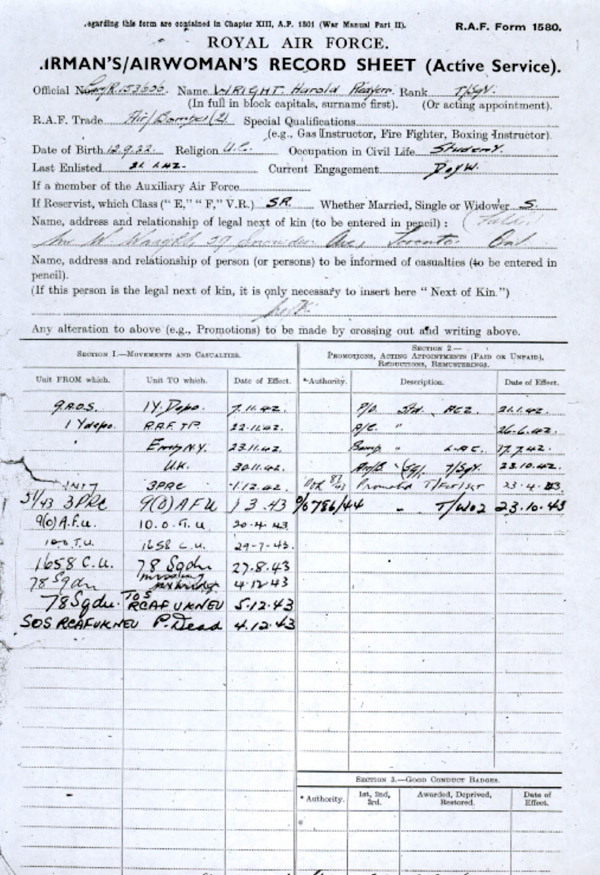 regarding this form are contained in Chapter XIII, A.P. 1301 (War Manual Part II).
R.A.F. Form 1580.
ROYAL AIR FORCE.
IRMAN'S/AIRWOMAN'S RECORD SHEET (Active Service).
Official No. Name WRIGHT. Harold Rank T/Sgt.
(In full in block capitals, surname first). (Or acting appointment).
R.A.F. Trade Air/Bomber(2) Special Qualifications
(e.g., Gas Instructor, Fire Fighter, Boxing Instructor).
Date of Birth 12.9.22. Religion U.C. Occupation in Civil Life Student.
Last Enlisted 21.1.42. Current Engagement D of W.
If a member of the Auxiliary Air Force
If Reservist, which Class (" E," " F," V.R.) SR. Whether Married, Single or Widower S.
Name, address and relationship of legal next of kin (to be entered in pencil) :
Ave, Toronto Ont
Name, address and relationship of person (or persons) to be informed of casualties (to be entered in
pencil).
(If this person is the legal next of kin, it is only necessary to insert here " Next of Kin.")
Any alteration to above (e.g., Promotions) to be made by crossing out and writing above.
SECTION 1.—MOVEMENTS AND CASUALTIES.
SECTION 2.—
PROMOTIONS, ACTING APPOINTMENTS (PAID OR UNPAID),
REDUCTIONS, REMUSTERINGS.
Unit FROM which. Unit TO which. Date of Effect. *Authority. Description. Date of Effect.
9.A.O.S. 1 Y. Depo. 7.11.42. P/O. Std. AC2 21.1.42.
1 Y depo. R.A.F. T.P. 22.11.42. A/C. " 26.6.42.
Emb N.Y. 23.11.42. Bomp " L.A.C. 17.7.42.
U.K. 30.11.42. T/Sgt. 23.10.42.
3PRC 1.12.42. Promoted T/F/Sgt 23.4.43
51/43 3PRC 9(O)A.F.U 1 3.43 6786/44 " T/WO2 23.10.43
9(O)A.F.U. 10.O.T.U 20.4.43
10 O.T.U. 1658 C.U. 29-7-43.
1658 C.U. 78 Sqdn 27.8.43
78 Sqdn missing 4.12.43
78 Sqdn. TOS RCAF UK NEU 5.12.43
SOS RCAF UK NEU P. Dead 4.12.43
SECTION 3.—GOOD CONDUCT BADGES.
*Authority. 1st, 2nd, 3rd. Awarded, Deprived, Restored. Date of Effect.